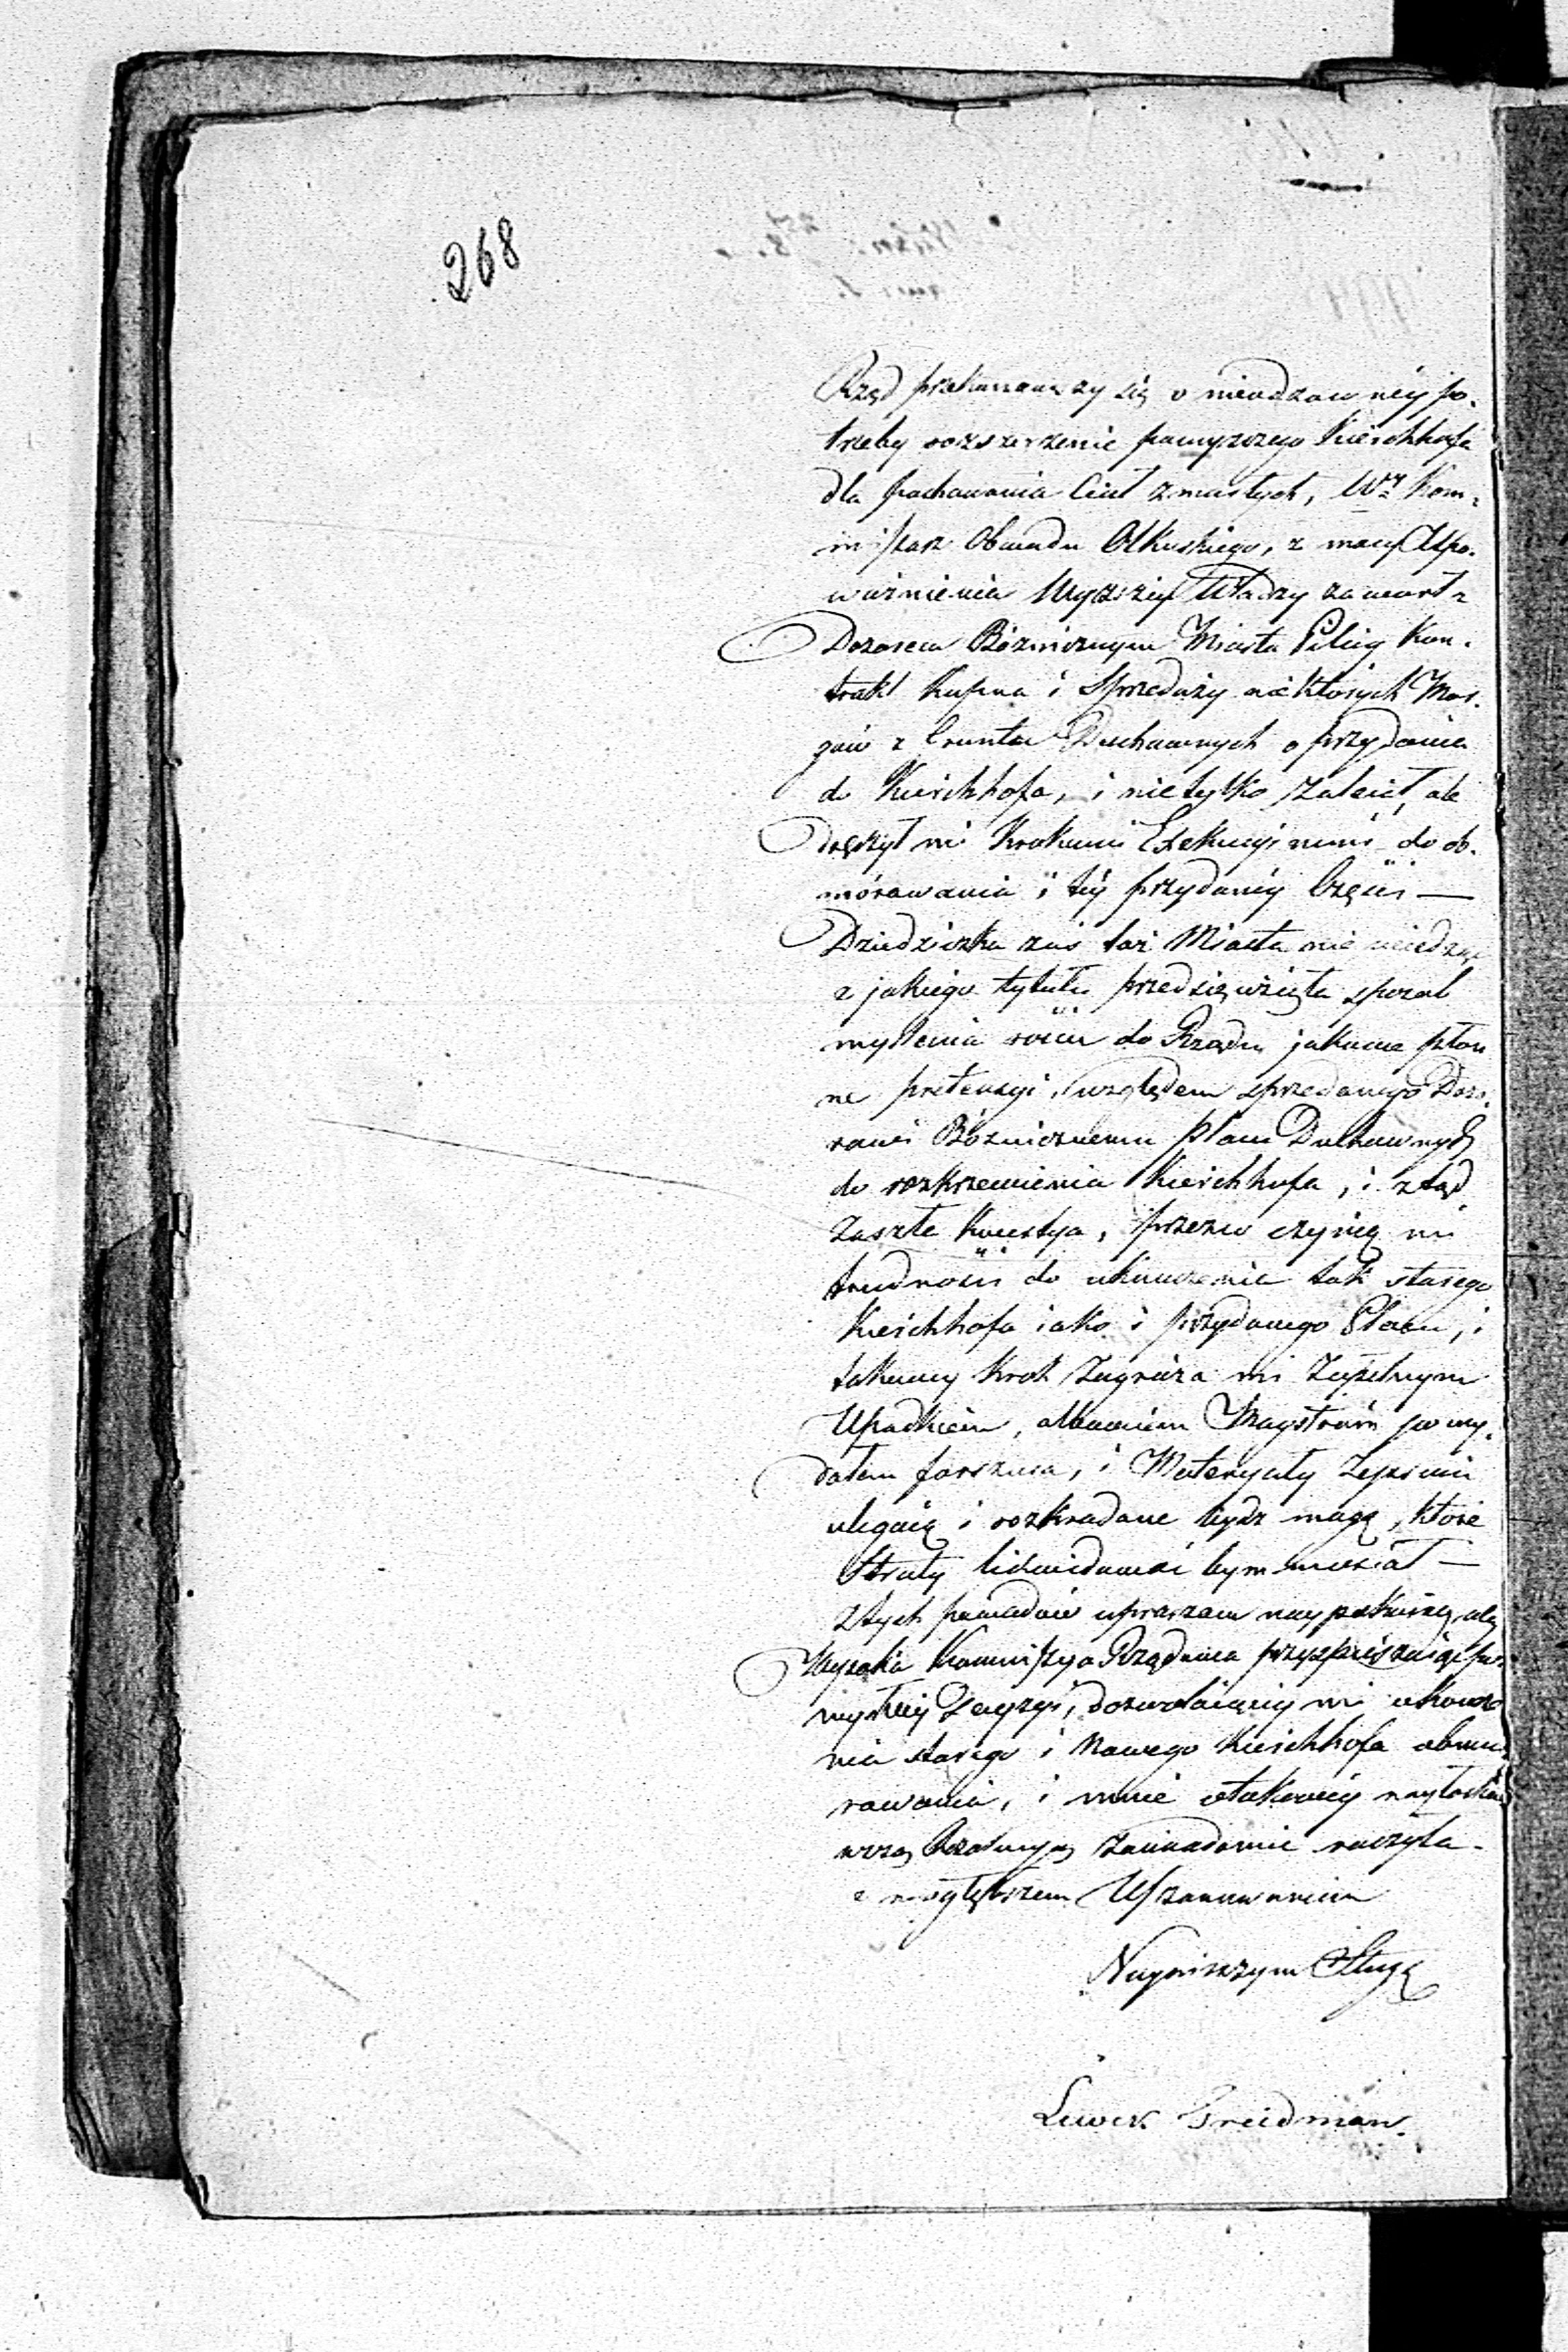 268
Rząd przekonawszy się o nieodzowney po-
trzeby rozszerzenie powyższego Kierchhofa
dla pochowania Ciał zmarłych, Wny Kom-
missarz Obwodu Olkuskiego, z mocy Upo-
ważnienia Wyższey Władzy zawarł z
Dozorem Bóżnicznym Miasta Pilicy Kon-
trakt Kupna i Sprzedaży niektórych Mor-
gów z Gruntów Duchownych o przydania
do Kierchhofa, i nietylko zalecił, ale
dręczył mi Krokami Exekucyinemi do ob-
mórowania i téy przydanéy Części —
Dziedziczka zaś toż Miasta nie wiedząc
z jakiego tytułu przedsięwzięta sposob
myślenia rościć do Rządu jakowe płon
ne pretensyi, względem sprzedanego Dozo-
rowi Bóżnicznemu Placu Duchownych
do rozkrzewienia Kierchhofa, i ztąd
zaszła Kwestya, przezco czynią mi
trudności do ukończenie tak starego
Kierchhofa iako i przydanego Placu, i
takowy Krok Zagraża mi Zupełnym
Upadkiem, albowiem Maystrom po wy-
dałem forszusa, i Materyały Zepsuciu
ulegaią i rozkradane bydz mogą, które
Straty likwidować bym musiał —
Z tych powodów upraszam nay pokorniéy, aby
Wysoka Kommissya Rządowa przyspieszaiąc po-
myślnéy Decyzyi, dozwolaiącéy mi ukończe
nia starego i Nowego Kierchhofa obmu-
rowania, i mnie otakowéy nayłaska
wszą Rezolucyą zawiadomić raczyła.
z naygłębszem Uszanowaniem
Nayniższym Sługą
Lewek Freidman.